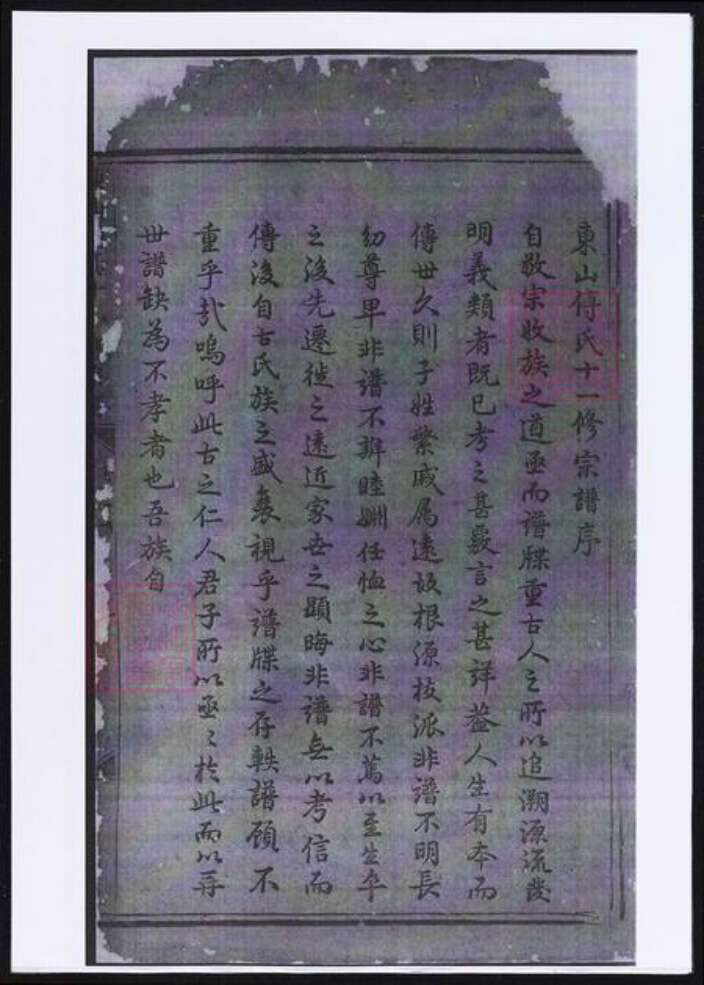 東山傅氏十一修宗譜序
自敬宗收族之道亟而譜牒重古人之所以追溯源流發
明義類者既已考之甚覈言之甚詳蓋人生有本而
傳世久則子姓繁戚屬遠故根源枝派非譜不明長
幼尊卑非譜不辨睦婣任恤之心非譜不篤以至生卒
之後先遷徙之遠近家世之顯晦非譜無以考信而
傳後自古氏族之盛衰視乎譜牒之存軼譜顧不
重乎哉嗚呼此古之仁人君子所以亟〻於此而以再
世譜缺為不孝者也吾族自